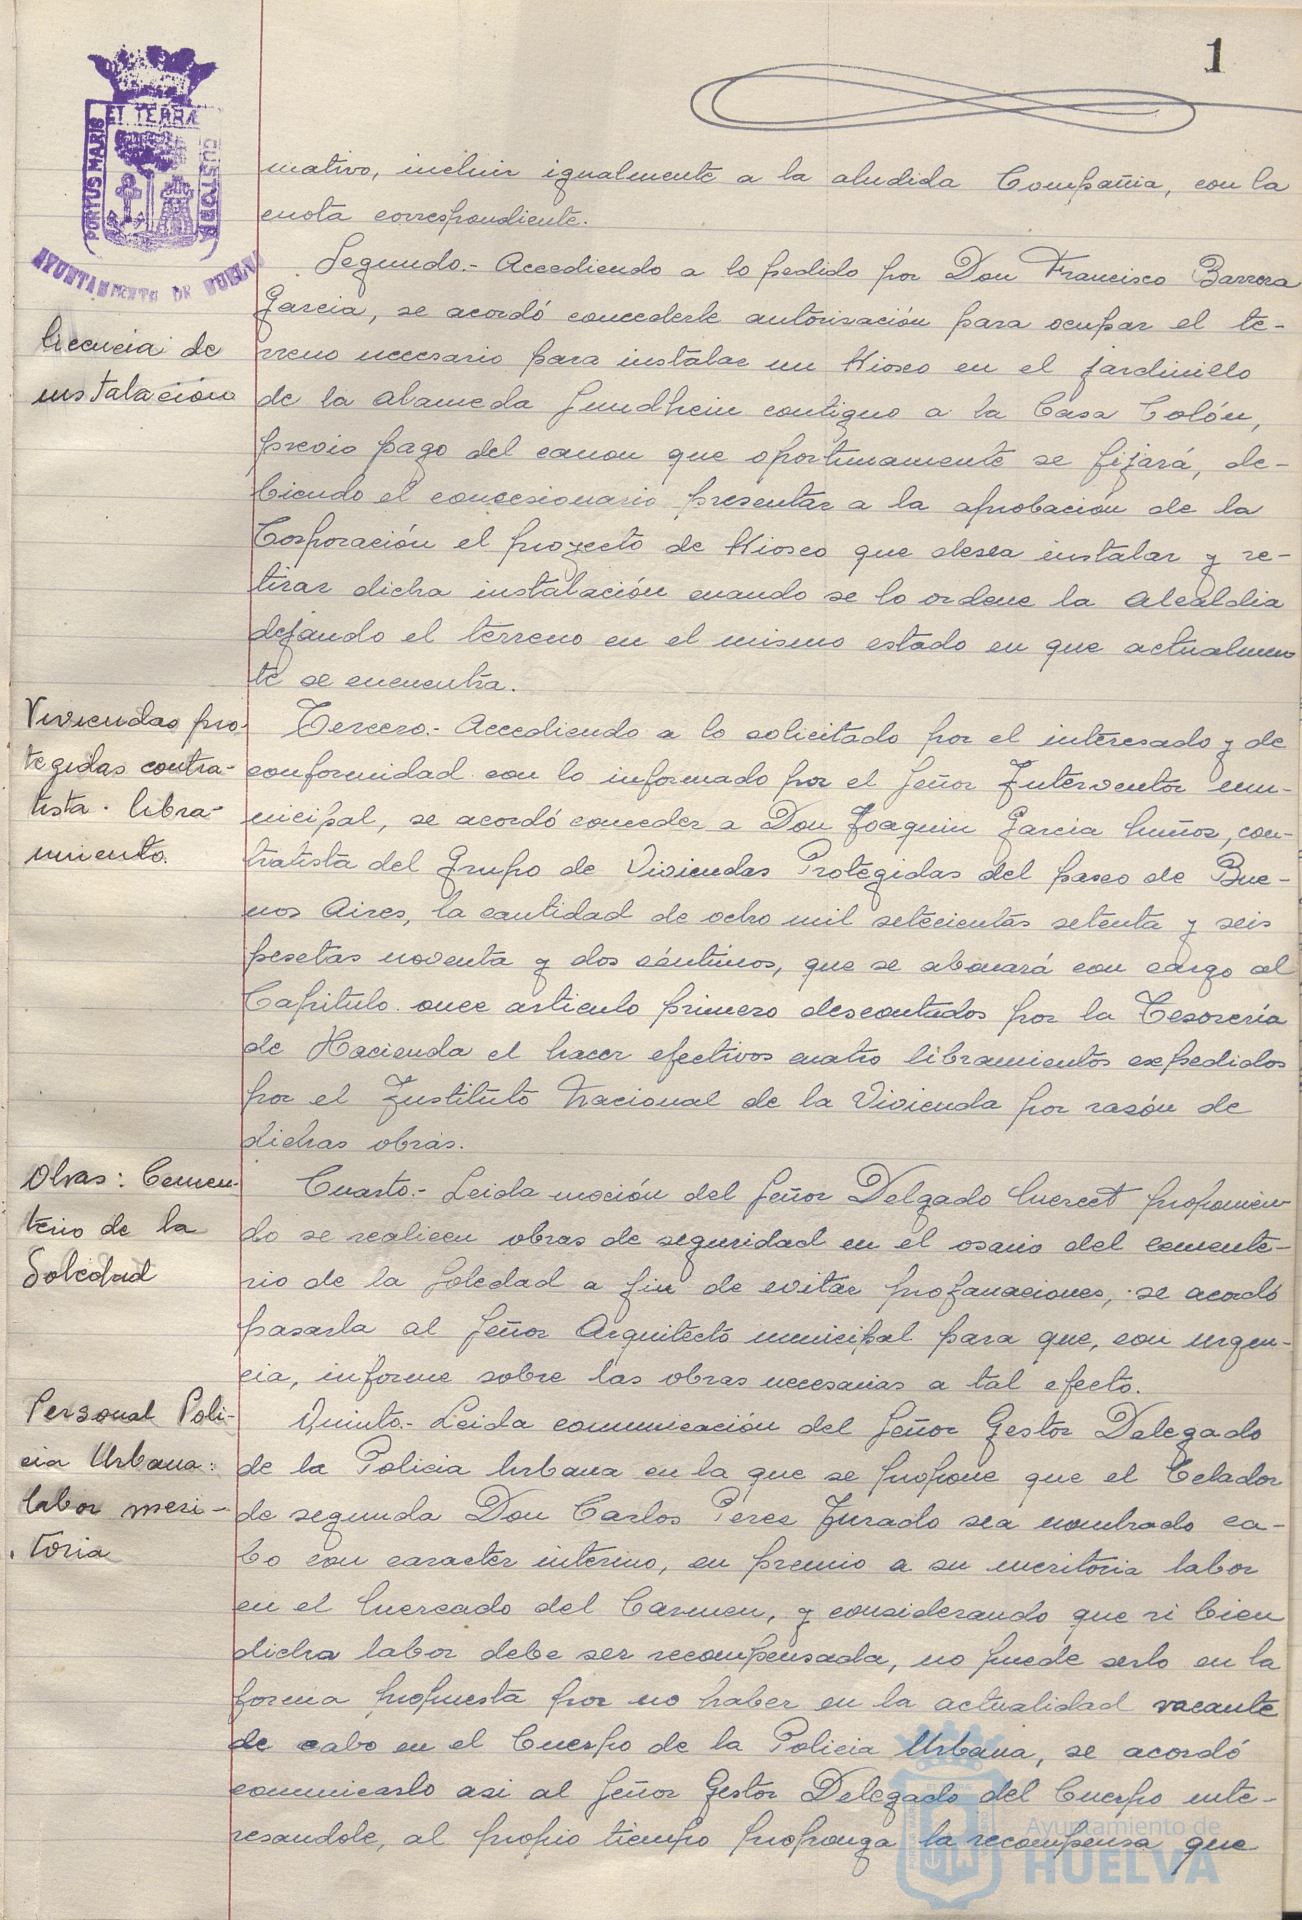 1
PORTUS MARIS
ET TERRÆ
CUSTODIA
AYUNTAMIENTO DE HUELVA
mativo, incluir igualmente a la aludida Compañia, con la
cuota correspondiente.
Licencia de
instalación
Segundo.- Accediendo a lo pedido por Don Francisco Barrera
Garcia, se acordó concederle autorización para ocupar el te-
rreno necesario para instalar un Kiosco en el jardinillo
de la Alameda Sundheim contiguo a la Casa Colón,
previo pago del canon que oportunamente se fijará, de-
biendo el concesionario presentar a la aprobación de la
Corporación el proyecto de Kiosco que desea instalar y re-
tirar dicha instalación cuando se lo ordene la Alcaldia
dejando el terreno en el mismo estado en que actualmen
te se encuentra.
Viviendas pro-
tegidas contra-
tista. libra-
miento.
Tercero.- Accediendo a lo solicitado por el interesado y de
conformidad con lo informado por el Señor Interventor mu-
nicipal, se acordó conceder a Don Joaquin Garcia Muñoz, con-
tratista del Grupo de Viviendas Protegidas del paseo de Bue-
nos Aires, la cantidad de ocho mil setecientas setenta y seis
pesetas noventa y dos céntimos, que se abonará con cargo al
Capitulo once articulo primero descontados por la Tesorería
de Hacienda el hacer efectivos cuatro libramientos expedidos
por el Instituto Nacional de la Vivienda por razón de
dichas obras.
Obras: Cemen-
terio de la
Soledad
Cuarto.- Leida moción del Señor Delgado Mercet proponien
do se realicen obras de seguridad en el osario del cemente-
rio de la Soledad a fin de evitar profanaciones, se acordó
pasarla al Señor Arquitecto municipal para que, con urgen-
cia, informe sobre las obras necesarias a tal efecto.
Personal Poli-
cia Urbana:
labor meri-
toria
Quinto.- Leida comunicación del Señor Gestor Delegado
de la Policia Urbana en la que se propone que el Celador
de segunda Don Carlos Perez Jurado sea nombrado ca-
bo con caracter interino, en premio a su meritoria labor
en el Mercado del Carmen, y considerando que si bien
dicha labor debe ser recompensada, no puede serlo en la
forma propuesta por no haber en la actualidad vacante
de cabo en el Cuerpo de la Policia Urbana, se acordó
comunicarlo asi al Señor Gestor Delegado del Cuerpo inte-
resandole, al propio tiempo proponga la recompensa que
Ayuntamiento de
HUELVA